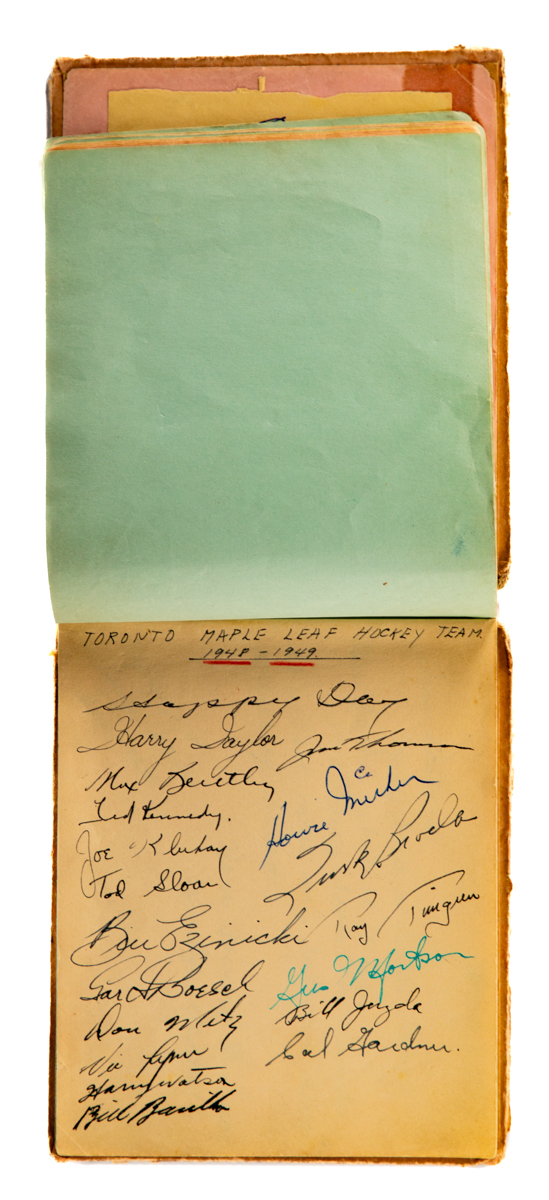 TORONTO MAPLE LEAF HOCKEY TEAM.
1948 - 1949
Happy Day
Harry Taylor
Jim Thomson
Max Bentley
Ted Kennedy.
Howie Meeker
Joe Klukay
Tod Sloan
Turk Broda
Bill Ezinicki
Ray Timgren
Garth Boesch
Gus Mortson
Don Metz
Bill Juzda
Vic Lynn
Cal Gardner.
Harry Watson
Bill Barilko